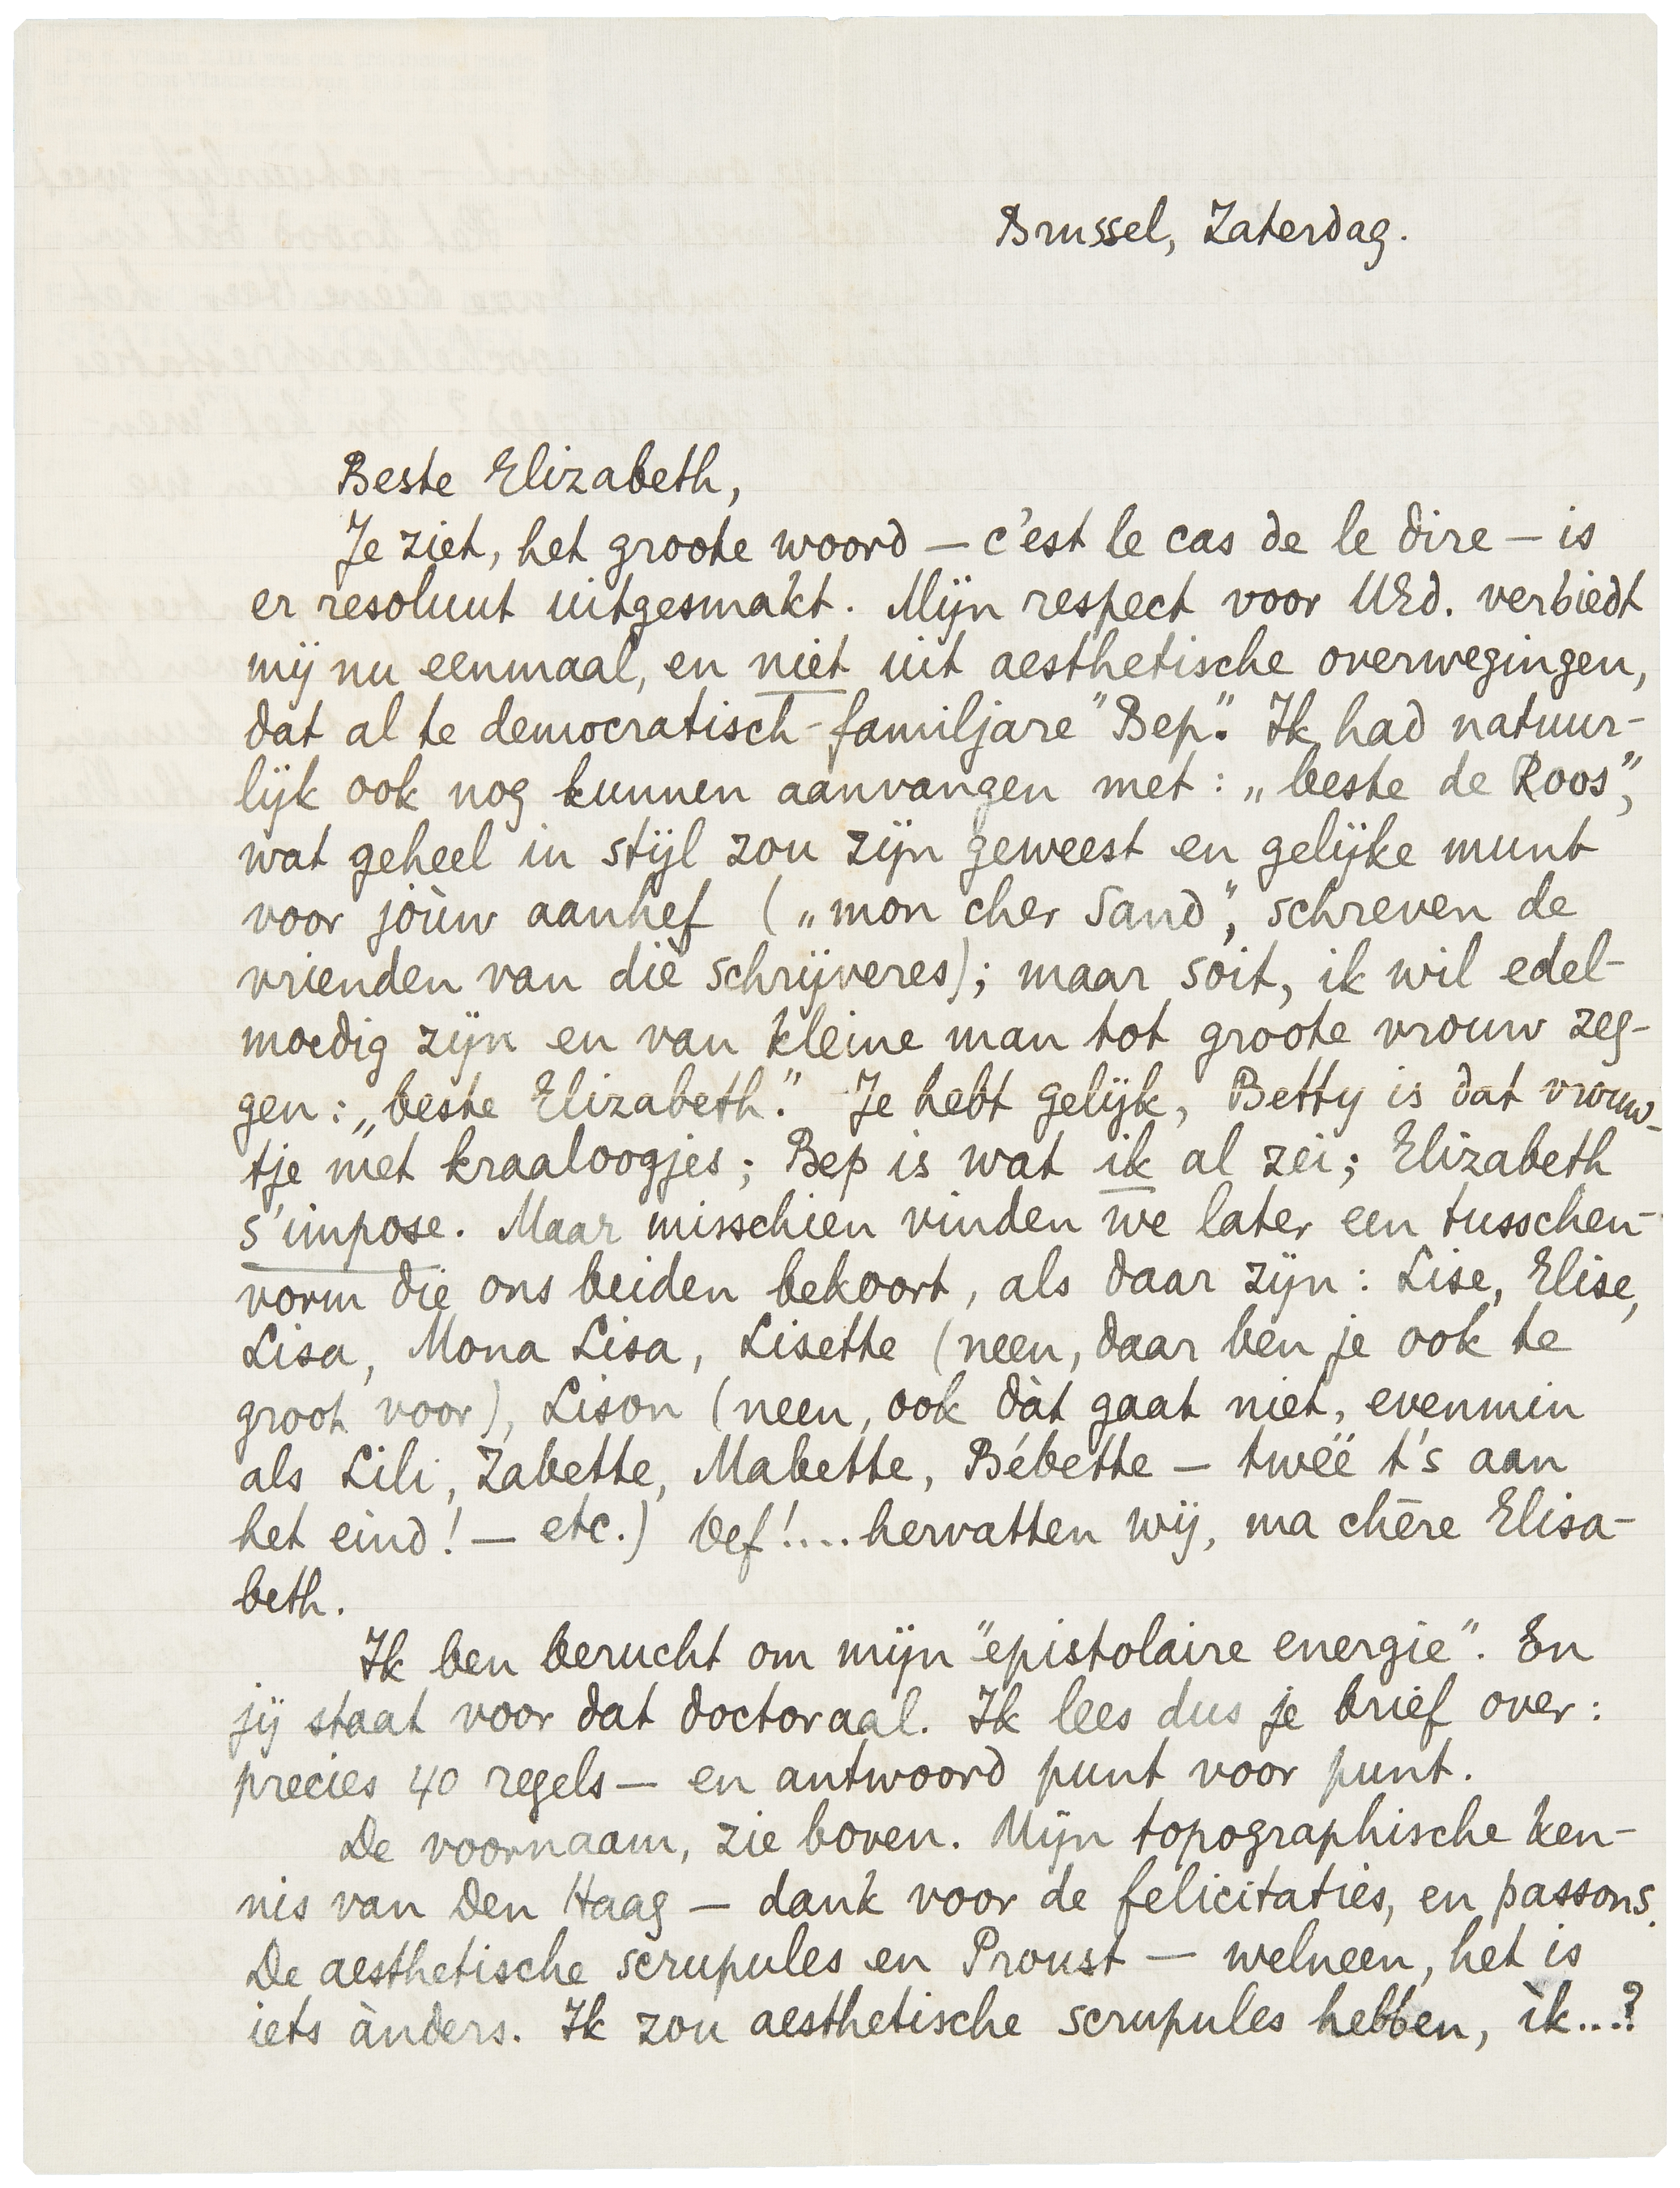 Brussel, Zaterdag.
Beste Elizabeth,
Je ziet, het groote woord — c'est le cas de le dire — is
er resoluut uitgesmakt. Mijn respect voor UEd. verbiedt
mij nu eenmaal, en niet uit aesthetische overwegingen,
dat al te democratisch-familjare "Bep". Ik had natuur-
lijk ook nog kunnen aanvangen met: „beste de Roos",
wat geheel in stijl zou zijn geweest en gelijke munt
voor jòùw aanhef („mon cher Sand", schreven de
vrienden van die schrijveres); maar soit, ik wil edel-
moedig zijn en van kleine man tot groote vrouw zeg-
gen: „beste Elizabeth." Je hebt gelijk, Betty is dat vrouw-
tje met kraaloogjes; Bep is wat ik al zei; Elizabeth
s'impose. Maar misschien vinden we later een tusschen-
vorm die ons beiden bekoort, als daar zijn: Lise, Elise,
Lisa, Mona Lisa, Lisette (neen, daar ben je ook te
groot voor), Lison (neen, ook dàt gaat niet, evenmin
als Lili, Zabette, Mabette, Bébette — twéé t's aan
het eind! — etc.) Oef!... hervatten wij, ma chère Elisa-
beth.
Ik ben berucht om mijn "epistolaire energie". En
jij staat voor dat doctoraal. Ik lees dus je brief over:
precies 40 regels — en antwoord punt voor punt.
De voornaam, zie boven. Mijn topographische ken-
nis van Den Haag — dank voor de felicitaties, en passons.
De aesthetische scrupules en Proust — welneen, het is
iets ànders. Ik zou aesthetische scrupules hebben, ìk...?